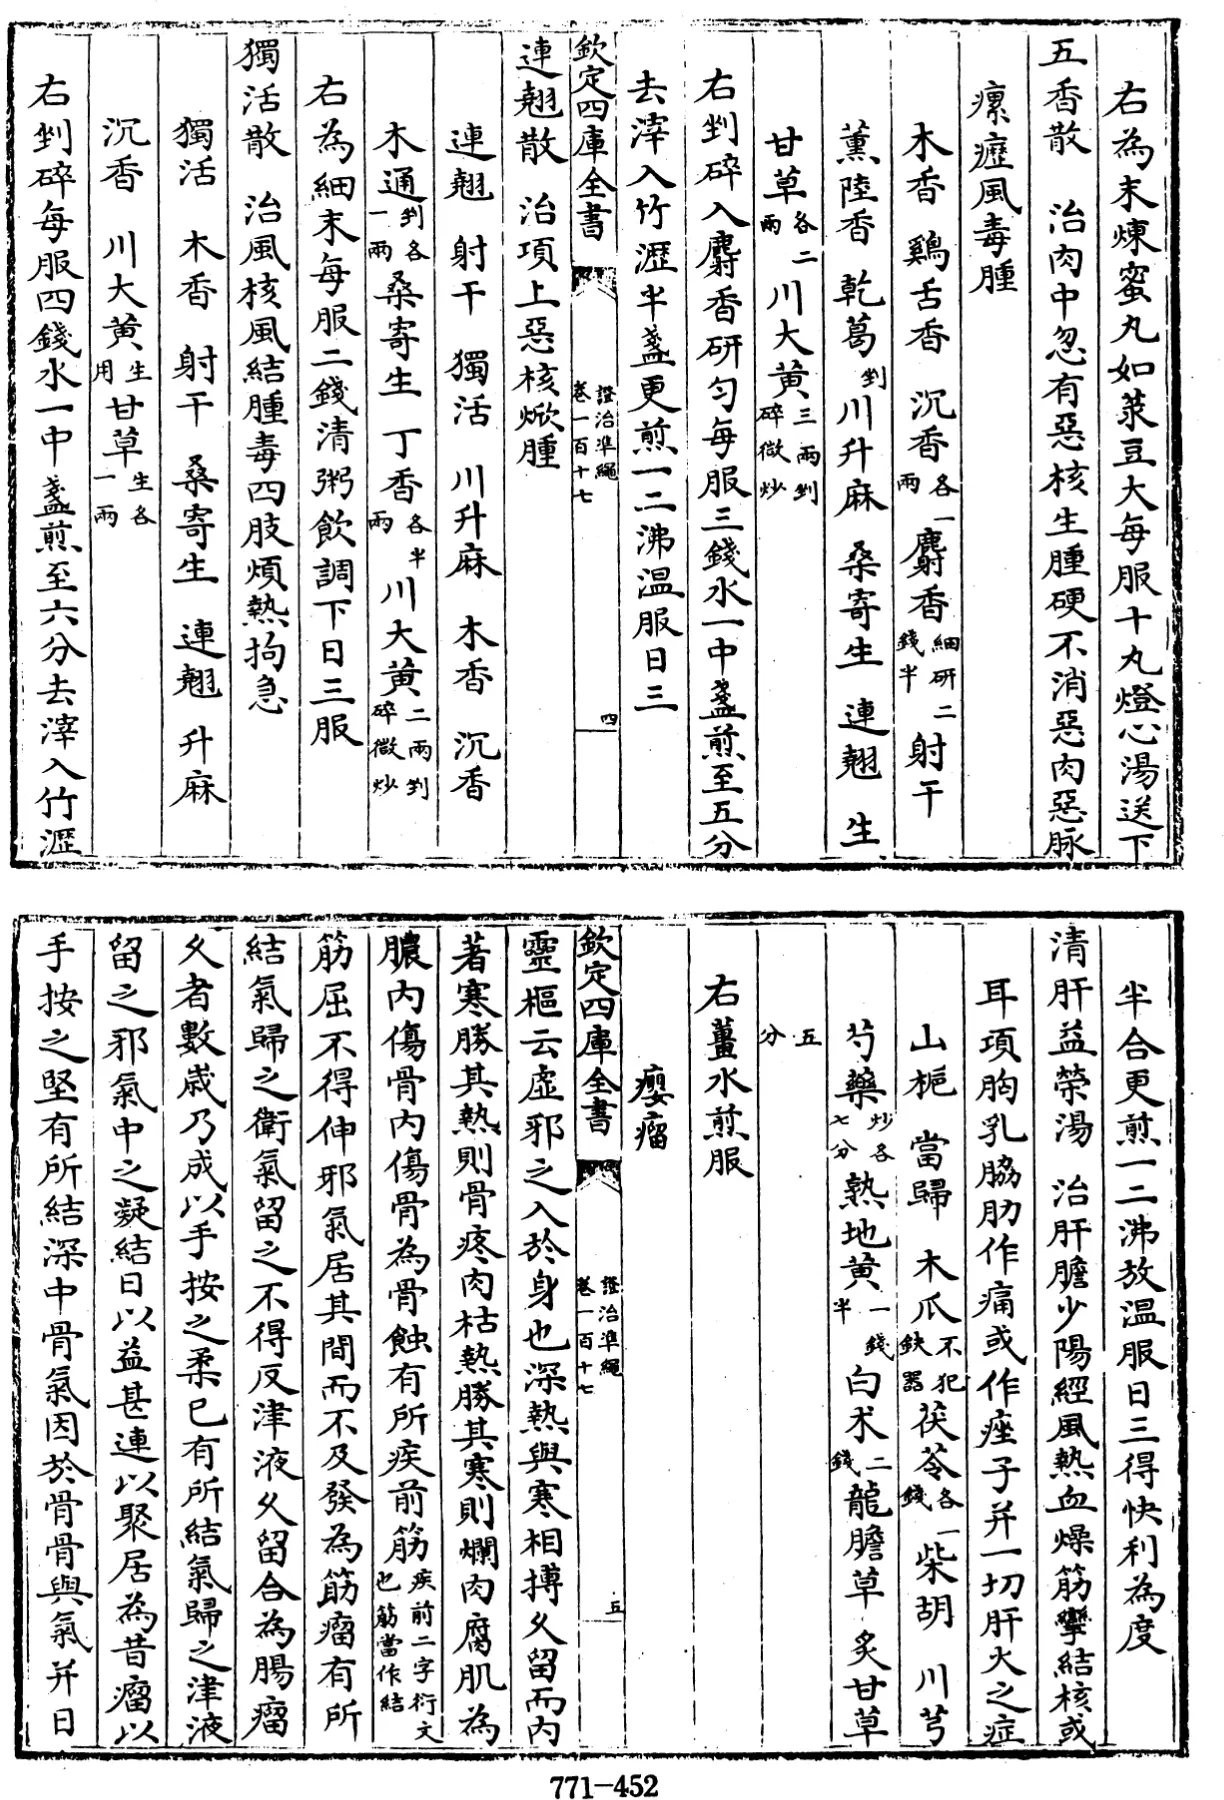 右為末煉蜜丸如菉豆大每服十丸燈心湯送下
五香散　治肉中忽有惡核生腫硬不消惡肉惡脉
瘰癧風毒腫
木香　鷄舌香　沉香各一兩　麝香細研二錢半　射干
薫陸香　乾葛剉　川升麻　桑寄生　連翹　生
甘草各二兩　川大黄三兩剉碎微炒
右剉碎入麝香研匀每服三錢水一中盞煎至五分
去滓入竹瀝半盞更煎一二沸温服日三
欽定四庫全書　證治準繩卷一百十七　四
連翹散　治項上惡核焮腫
連翹　射干　獨活　川升麻　木香　沉香
木通剉各一兩　桑寄生　丁香各半兩　川大黄二兩剉碎微炒
右為細末每服二錢清粥飲調下日三服
獨活散　治風核風結腫毒四肢煩熱拘急
獨活　木香　射干　桑寄生　連翹　升麻
沉香　川大黄生用　甘草生各一兩
右剉碎每服四錢水一中盞煎至六分去滓入竹瀝
半合更煎一二沸放温服日三得快利為度
清肝益榮湯　治肝膽少陽經風熱血燥筋攣結核或
耳項胸乳脇肋作痛或作痤子并一切肝火之症
山梔　當歸　木瓜不犯鉄器　茯苓各一錢　柴胡　川芎
芍藥炒各七分　熱地黄一錢半　白术二錢　龍膽草　炙甘草
五分
右薑水煎服
癭瘤
欽定四庫全書　證治準繩卷一百十七　五
靈樞云虚邪之入於身也深熱與寒相搏久留而内
著寒勝其熱則骨疼肉枯熱勝其寒則爛肉腐肌為
膿内傷骨内傷骨為骨蝕有所疾前筋疾前二字衍文也筋當作結
筋屈不得伸邪氣居其間而不及發為筋瘤有所
結氣歸之衛氣留之不得反津液久留合為腸瘤
久者數歲乃成以手按之柔已有所結氣歸之津液
留之邪氣中之凝結日以益甚連以聚居為昔瘤以
手按之堅有所結深中骨氣因於骨骨與氣并日
771-452